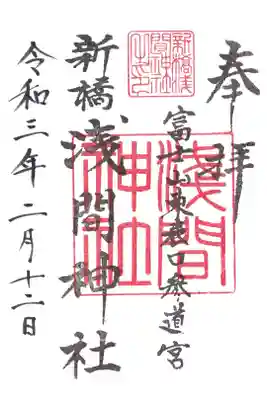 奉拝
富士山東表口参道宮
新橋浅間神社
令和三年二月十二日
新橋浅
間神社
浅間
神社